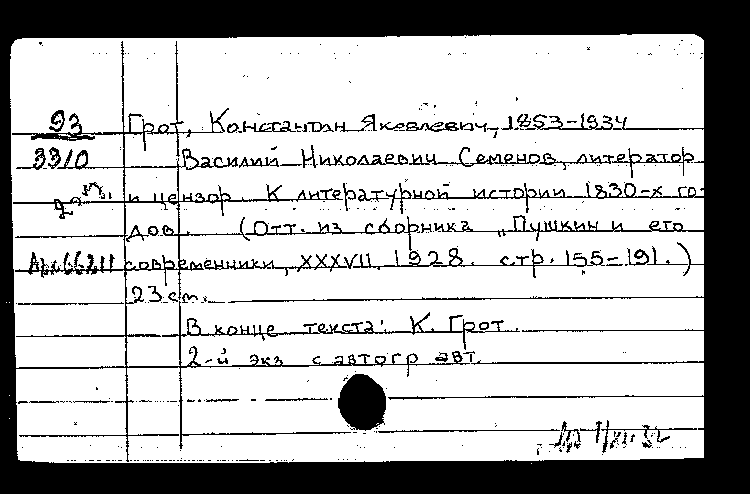 93 Грот, Константин Яковлевич, 1853-1934
3310 Василий Николаевич Семенов, литератор
и цензор. К литературной истории 1830-х го-
дов. (Отт. из сборника „Пушкин и его
современники, XXXVII. 1928. стр. 155-191.)
23 cm.
В конце текста: К. Грот.
2-й экз с автогр авт.